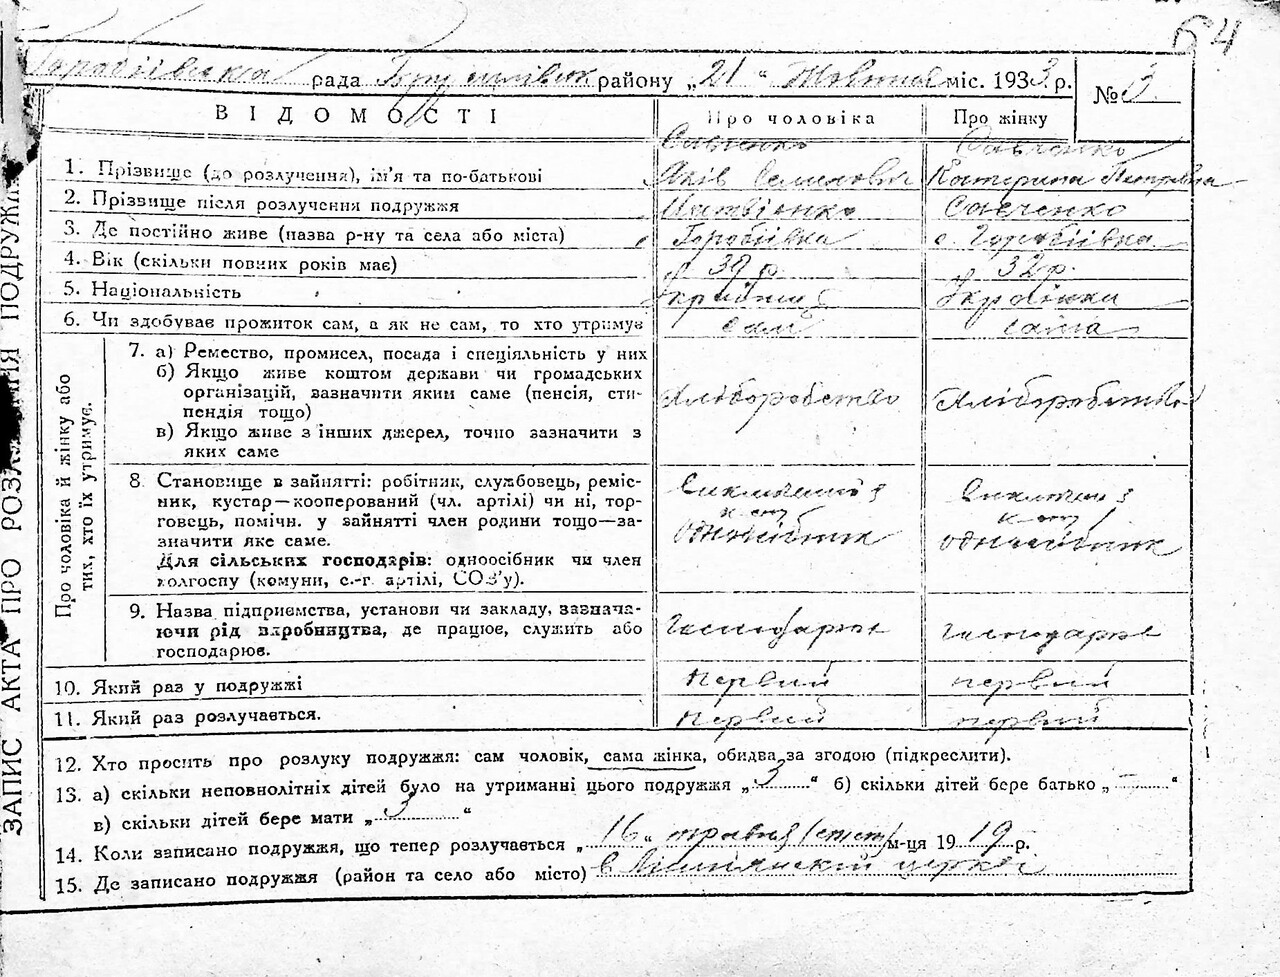 64
Горобіївська рада Брусилівськ району „21“ Жовтня міс. 1933 р.
№ 3
ВІДОМОСТІ
Про чоловіка
Про жінку
1. Прізвище (до розлучення), ім'я та по-батькові
Савченко
Яків Семенович
Савченко
Катерина Петрівна
2. Прізвище після розлучення подружжя
Савченко
3. Де постійно живе (назва р-ну та села або міста)
Горобіївка
с. Горобіївка
4. Вік (скільки повних років має)
39 р.
32 р.
5. Національність
Українец
Українка
6. Чи здобуває прожиток сам, а як не сам, то хто утримує
сам
сама
Про чоловіка й жінку або
тих, хто їх утримує.
7. а) Ремество, промисел, посада і спеціяльність у них
б) Якщо живе коштом держави чи громадських
організацій, зазначити яким саме (пенсія, сти-
пендія тощо)
в) Якщо живе з інших джерел, точно зазначити з
яких саме
Хліборобство
Хліборобство
8. Становище в зайнятті: робітник, службовець, реміс-
ник, кустар—кооперований (чл. артілі) чи ні, тор-
говець, помічн. у зайнятті член родини тощо—за-
значити яке саме.
Для сільських господарів: одноосібник чи член
колгоспу (комуни, с.-г. артілі, СОЗ'у).
одноосібник
одноосібник
9. Назва підприємства, установи чи закладу, зазнача-
ючи рід виробництва, де працює, служить або
господарює.
Господарює
господарює
10. Який раз у подружжі
первий
первий
11. Який раз розлучається.
первий
первий
12. Хто просить про розлуку подружжя: сам чоловік, сама жінка, обидва за згодою (підкреслити).
13. а) скільки неповнолітніх дітей було на утриманні цього подружжя „3“ б) скільки дітей бере батько „–“
в) скільки дітей бере мати „3“
14. Коли записано подружжя, що тепер розлучається „16“ травня м-ця 1919 р.
15. Де записано подружжя (район та село або місто) в церкві
ЗАПИС АКТА ПРО РОЗЛ НЯ ПОДРУЖЖ